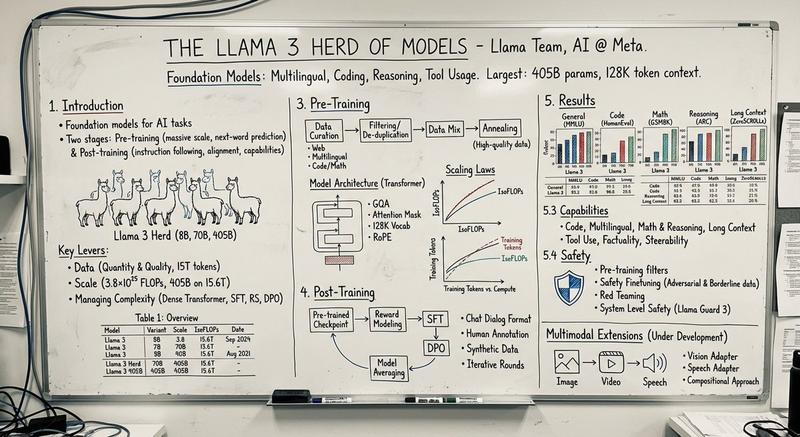 THE LLAMA 3 HERD OF MODELS - Llama Team, AI @ Meta.
Foundation Models: Multilingual, Coding, Reasoning, Tool Usage. Largest: 405B params, 128K token context.
1. Introduction
• Foundation models for AI tasks
• Two stages: Pre-training (massive scale, next-word prediction)
& Post-training (instruction following, alignment, capabilities)
Llama 3 Herd (8B, 70B, 405B)
Key Levers:
• Data (Quantity & Quality, 15T tokens)
• Scale (3.8×10²⁵ FLOPs, 405B on 15.6T)
• Managing Complexity (Dense Transformer, SFT, RS, DPO)
Table 1: Overview
Model Variant Scale IsoFLOPs Date
Llama 3 8B 3.8 15.6T Sep 2024
Llama 3 7B 70B 13.6T -
Llama 3 8B 90B 15.6T Aug 2021
Llama 3 Herd 70B 405B 15.6T -
Llama 3 405B 405B 405B 15.6T -
3. Pre-Training
Data Curation
Filtering/De-duplication
Data Mix
Annealing
(High-quality data)
• Web
• Multilingual
• Code/Math
Model Architecture (Transformer)
• GQA
• Attention Mask
• 128K Vocab
• RoPE
Scaling Laws
IsoFLOPs
IsoFLOPs
IsoFLOPs
Training Tokens
Training Tokens
IsoFLOPs
Training Tokens vs. Compute
4. Post-Training
Pre-trained Checkpoint
Reward Modeling
SFT
DPO
Model Averaging
• Chat Dialog Format
• Human Annotation
• Synthetic Data
• Iterative Rounds
5. Results
General (MMLU)
Code (HumanEval)
Math (GSM8K)
Reasoning (ARC)
Long Context (ZeroSCROLLs)
5.3 Capabilities
• Code, Multilingual, Math & Reasoning, Long Context
• Tool Use, Factuality, Steerability
5.4 Safety
• Pre-training filters
• Safety Finetuning (Adversarial & Borderline data)
• Red Teaming
• System Level Safety (Llama Guard 3)
Multimodal Extensions (Under Development)
Image
Video
Speech
• Vision Adapter
• Speech Adapter
• Compositional Approach